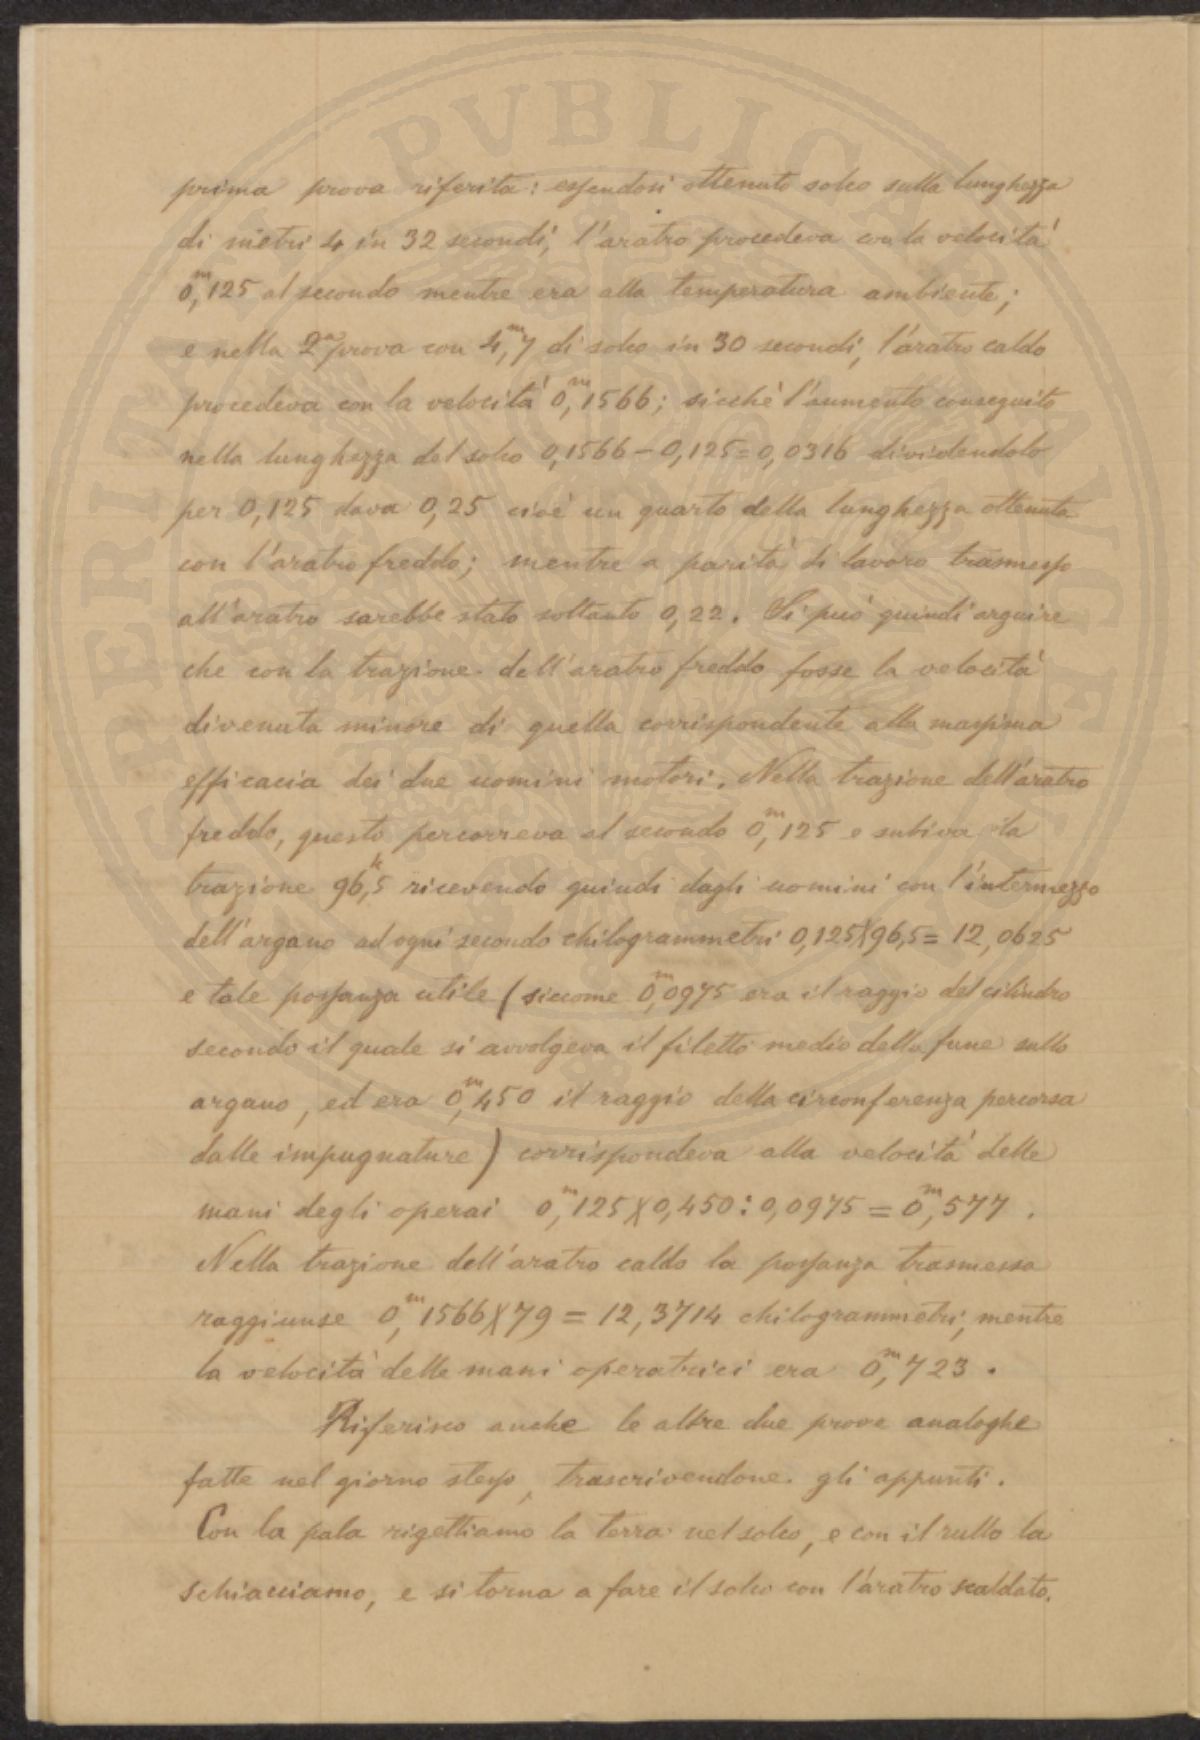 prima prova riferita: essendosi ottenuto solco sulla lunghezza
di metri 4 in 32 secondi, l'aratro procedeva con la velocità
0,ᵐ125 al secondo mentre era alla temperatura ambiente;
e nella 2ª prova con 4,ᵐ7 di solco in 30 secondi, l'aratro caldo
procedeva con la velocità 0,ᵐ1566; sicchè l'aumento conseguito
nella lunghezza del solco 0,1566-0,125=0,0316 dividendolo
per 0,125 dava 0,25 cioè un quarto della lunghezza ottenuta
con l'aratro freddo; mentre a parità di lavoro trasmesso
all'aratro sarebbe stato soltanto 0,22. Si può quindi arguire
che con la trazione dell'aratro freddo fosse la velocità
divenuta minore di quella corrispondente alla massima
efficacia dei due uomini motori. Nella trazione dell'aratro
freddo, questo percorreva al secondo 0,ᵐ125 e subiva la
trazione 96,ᵏ5 ricevendo quindi dagli uomini con l'intermezzo
dell'argano ad ogni secondo chilogrammetri 0,125X96,5=12,0625
e tale possanza utile (siccome 0,ᵐ0975 era il raggio del cilindro
secondo il quale si avvolgeva il filetto medio della fune sullo
argano, ed era 0,ᵐ450 il raggio della circonferenza percorsa
dalle impugnature) corrispondeva alla velocità delle
mani degli operai 0,ᵐ125X0,450:0,0975=0,ᵐ577.
Nella trazione dell'aratro caldo la possanza trasmessa
raggiunse 0,ᵐ1566X79=12,3714 chilogrammetri, mentre
la velocità delle mani operatrici era 0,ᵐ723.
Riferisco anche le altre due prove analoghe
fatte nel giorno stesso, trascrivendone gli appunti.
Con la pala rigettiamo la terra nel solco, e con il rullo la
schiacciamo, e si torna a fare il solco con l'aratro scaldato.